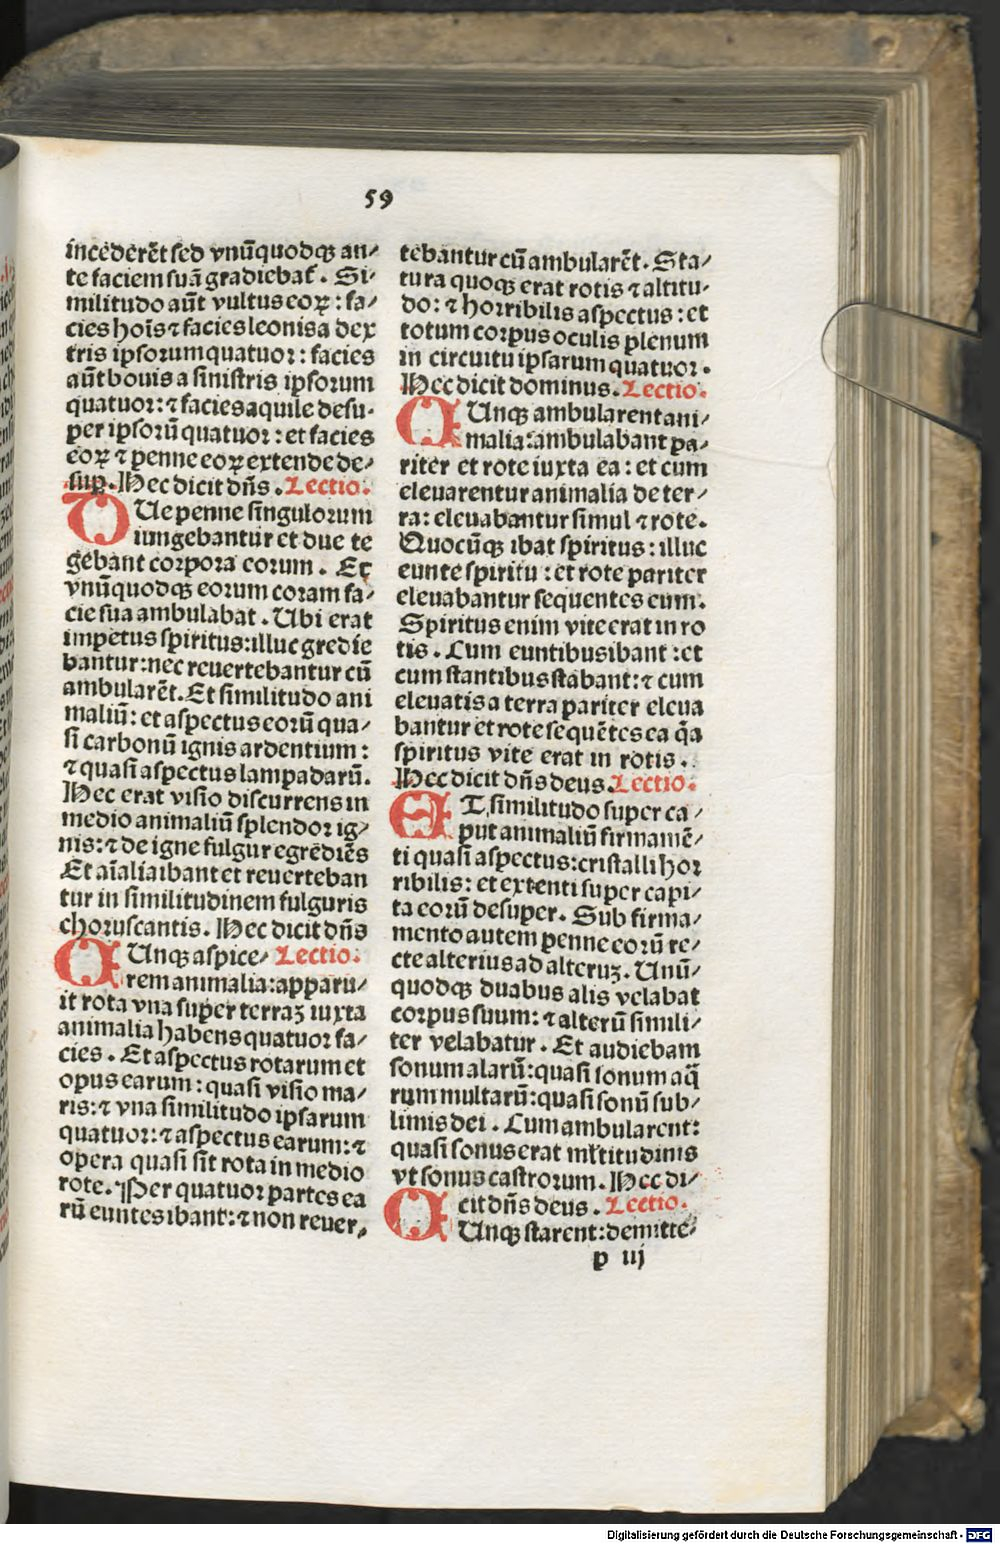 59
incederēt sed vnūquodqꝫ an⸗
te faciem suā gradiebat̄. Si⸗
militudo aūt vultus eoꝝ: fa⸗
cies hoīs ⁊ facies leonis a dex
tris ipsorum quatuor: facies
aūt bouis a sinistris ipsorum
quatuor: ⁊ facies aquile desu⸗
per ipsorū quatuor: et facies
eoꝝ ⁊ penne eoꝝ extende de⸗
suꝑ. Hec dicit dn̄s. Lectio.
DUe penne singulorum
iungebantur et due te
gebant corpora eorum. Et
vnūquodqꝫ eorum coram fa⸗
cie sua ambulabat. Ubi erat
impetus spiritus: illuc gredie
bantur: nec reuertebantur cū
ambularēt. Et similitudo ani
maliū: et aspectus eorū qua⸗
si carbonū ignis ardentium:
⁊ quasi aspectus lampadarū.
Hec erat visio discurrens in
medio animaliū splendor ig⸗
nis: ⁊ de igne fulgur egrediēs
Et aīalia ibant et reuerteban
tur in similitudinem fulguris
choruscantis. Hec dicit dn̄s
CUnqꝫ aspice⸗ Lectio.
rem animalia: apparu⸗
it rota vna super terraꝫ iuxta
animalia habens quatuor fa⸗
cies. Et aspectus rotarum et
opus earum: quasi visio ma⸗
ris: ⁊ vna similitudo ipsarum
quatuor: ⁊ aspectus earum: ⁊
opera quasi sit rota in medio
rote. Per quatuor partes ea
rū euntes ibant: ⁊ non reuer⸗
tebantur cū ambularēt. Sta⸗
tura quoqꝫ erat rotis ⁊ altitu⸗
do: ⁊ horribilis aspectus: et
totum corpus oculis plenum
in circuitu ipsarum quatuor.
Hec dicit dominus. Lectio.
CUnqꝫ ambularent ani⸗
malia: ambulabant pa⸗
riter et rote iuxta ea: et cum
eleuarentur animalia de ter⸗
ra: eleuabantur simul ⁊ rote.
Quocūqꝫ ibat spiritus: illuc
eunte spiritu: et rote pariter
eleuabantur sequentes eum.
Spiritus enim vite erat in ro
tis. Cum euntibus ibant: et
cum stantibus stabant: ⁊ cum
eleuatis a terra pariter eleua
bantur et rote sequētes ea q̄a
spiritus vite erat in rotis.
Hec dicit dn̄s deus. Lectio.
ET similitudo super ca⸗
put animaliū firmamē⸗
ti quasi aspectus: cristalli hor
ribilis: et extenti super capi⸗
ta eorū desuper. Sub firma⸗
mento autem penne eorū re⸗
cte alterius ad alteruꝫ. Unū⸗
quodqꝫ duabus alis velabat
corpus suum: ⁊ alterū simili⸗
ter velabatur. Et audiebam
sonum alarū: quasi sonum aq̄
rum multarū: quasi sonū sub⸗
limis dei. Cum ambularent:
quasi sonus erat ml̄titudinis
vt sonus castrorum. Hec di⸗
cit dn̄s deus. Lectio.
CUnqꝫ starent: demitte⸗
p iij
Digitalisierung gefördert durch die Deutsche Forschungsgemeinschaft - DFG